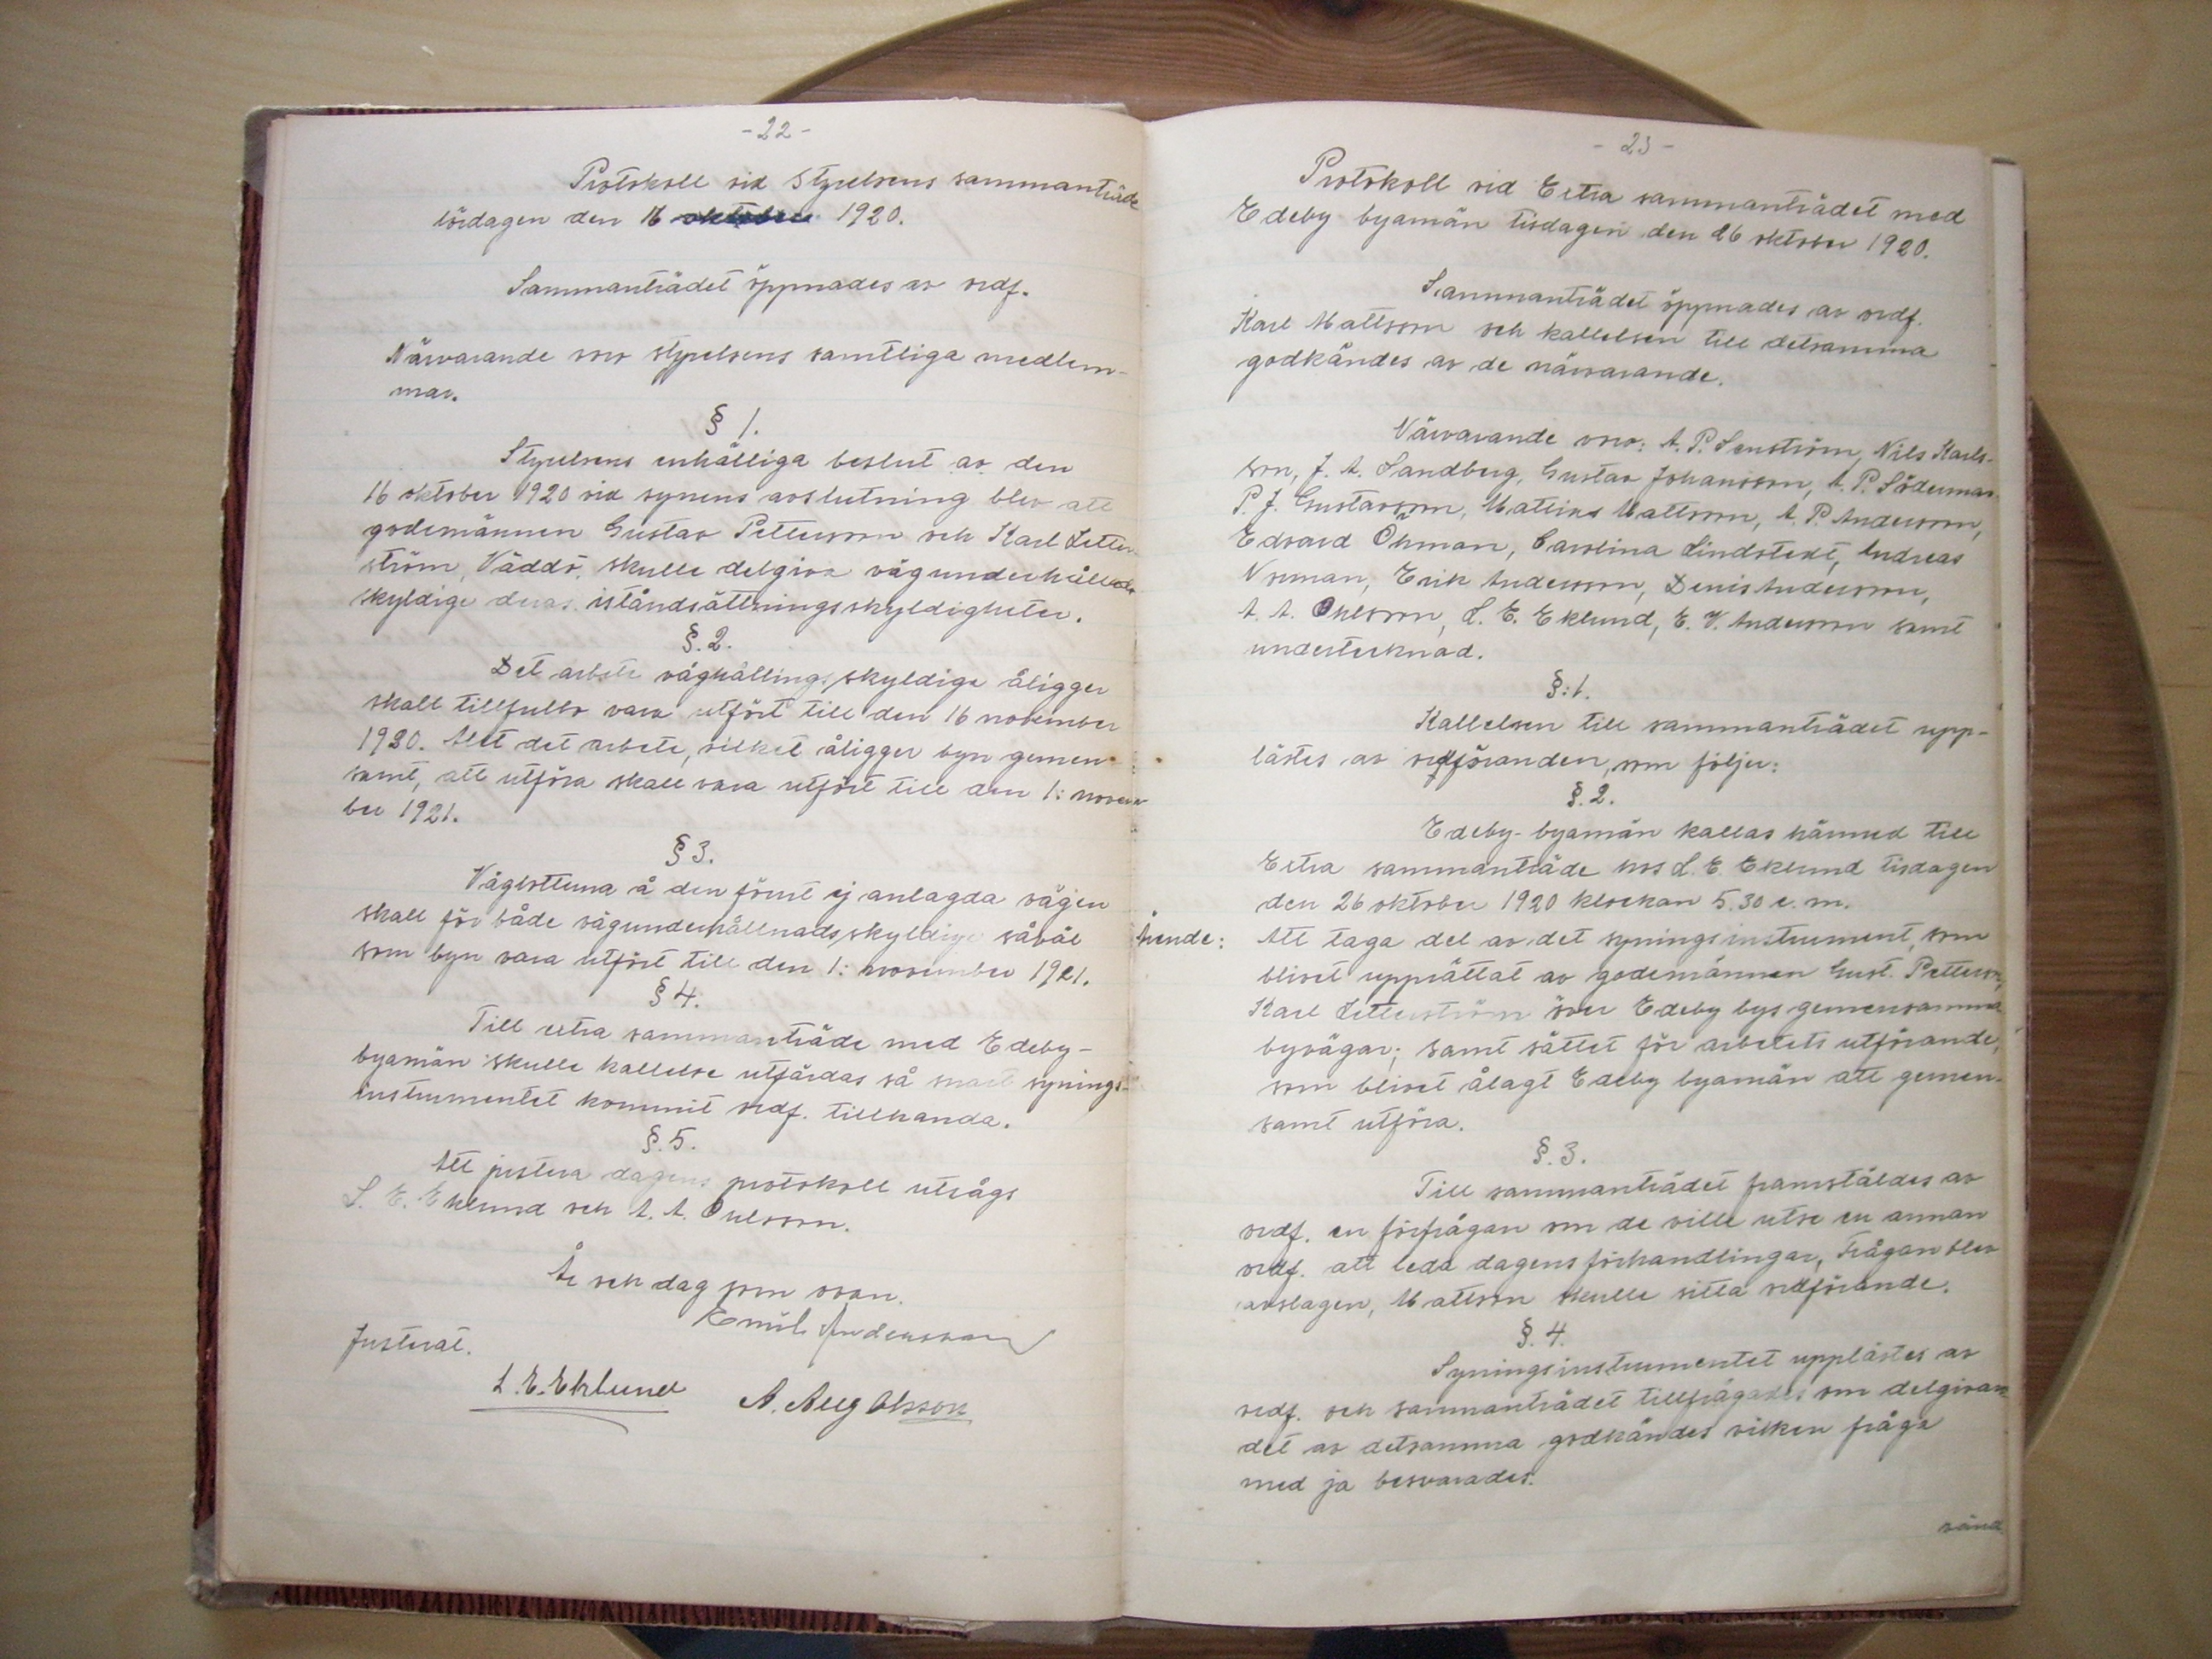 - 22 -
Protokoll vid Styrelsens sammanträde
lördagen den 16 oktober 1920.
Sammanträdet öppnades av ordf.
Närvarande voro styrelsens samtliga medlem-
mar.
§ 1.
Styrelsens enhälliga beslut av den
16 oktober 1920 vid synens avslutning blev att
godemännen Gustav Pettersson och Karl Zetter-
ström, Väddö, skulle delgiva vägunderhållnads
skyldige deras iståndsättningsskyldigheter.
§. 2.
Det arbete väghållingsskyldige åligger
skall tillfullo vara utfört till den 16 november
1920. Allt det arbete, vilket åligger byn gemen-
samt, att utföra skall vara utfört till den 1: novem
ber 1921.
§ 3.
Väglotterna å den förut ej anlagda vägen
skall för både vägunderhållnadsskyldige såväl
som byn vara utfört till den 1: november 1921.
§ 4.
Till extra sammanträde med Edeby-
byamän skulle kallelse utfärdas så snart synings-
instrumentet kommit ordf. tillhanda.
§. 5.
Att justera dagens protokoll utsågs
L. E. Eklund och A. A. Ohlsson.
År och dag som ovan.
Emil Andersson
Justerat.
L. E. Eklund A. Aug Olsson
- 23 -
Protokoll vid Extra sammanträdet med
Edeby byamän tisdagen den 26 oktober 1920.
Sammanträdet öppnades av ordf.
Karl Mattsson och kallelsen till detsamma
godkändes av de närvarande.
Närvarande voro: A. P. Senström, Nils Karls-
son, J. A. Sandberg, Gustav Johansson, A. P. Söderman
P. J. Gustavsson, Mattias Mattsson, A. P. Andersson,
Edvard Öhman, Carolina Lindstedt, Andreas
Norman, Erik Andersson, Denis Andersson,
A. A. Ohlsson, L. E. Eklund, E. V. Andersson samt
undertecknad.
§: 1.
Kallelsen till sammanträdet upp-
lästes av ordföranden, som följer:
§. 2.
Edeby-byamän kallas härmed till
Extra sammanträde hos L. E. Eklund tisdagen
den 26 oktober 1920 klockan 5.30 e. m.
Att taga del av det syningsinstrument, som
blivit upprättat av godemännen Gust. Petterson,
Karl Zetterström över Edeby bys gemensamma
byvägar; samt sättet för arbetets utförande,
som blivit ålagt Edeby byamän att gemen-
samt utföra.
§. 3.
Till sammanträdet framstäldes av
ordf. en förfrågan om de ville utse en annan
ordf. att leda dagens förhandlingar, Frågan blev
avslagen, Mattson skulle sitta ordförande.
§. 4.
Syningsinstrumentet upplästes av
ordf. och sammanträdet tillfrågades om delgivan-
det av detsamma godkändes vilken fråga
med ja besvarades.
vänd.